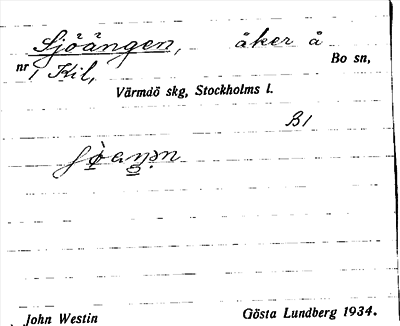 Sjöängen, åker å
nr 1 Kil, Bo sn,
Värmdö skg, Stockholms l.
B1
John Westin Gösta Lundberg 1934.